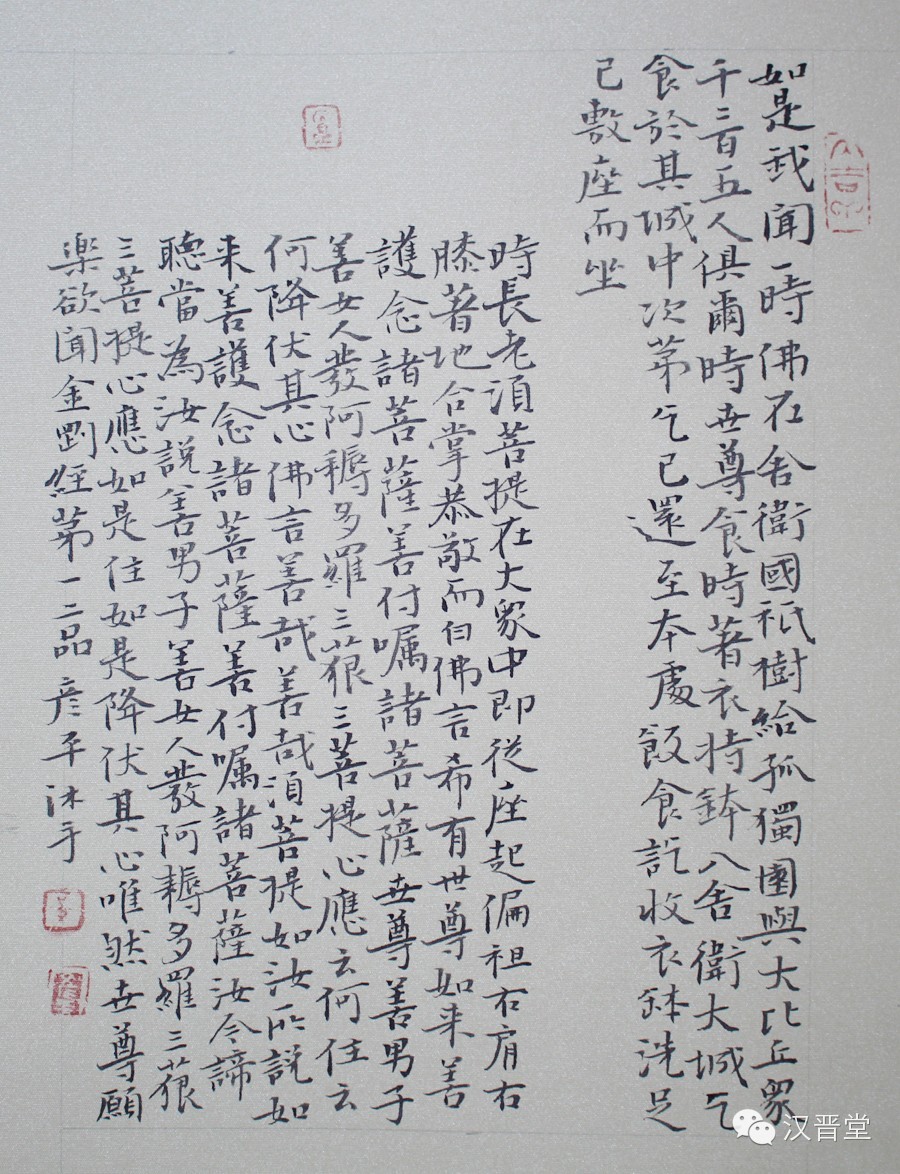 如是我聞一時佛在舍衛國祇樹給孤獨園與大比丘眾
千二百五人俱爾時世尊食時著衣持鉢入舍衛大城乞
食於其城中次第乞已還至本處飯食訖收衣鉢洗足
已敷座而坐
時長老須菩提在大眾中即從座起偏袒右肩右
膝著地合掌恭敬而白佛言希有世尊如来善
護念諸菩薩善付嘱諸菩薩世尊善男子
善女人發阿耨多羅三藐三菩提心應云何住云
何降伏其心佛言善哉善哉須菩提如汝所説如
来善護念諸菩薩善付嘱諸菩薩汝今諦
聽當為汝説善男子善女人發阿耨多羅三藐
三菩提心應如是住如是降伏其心唯然世尊願
楽欲聞金剛經第一二品彦平沐手
汉晋堂